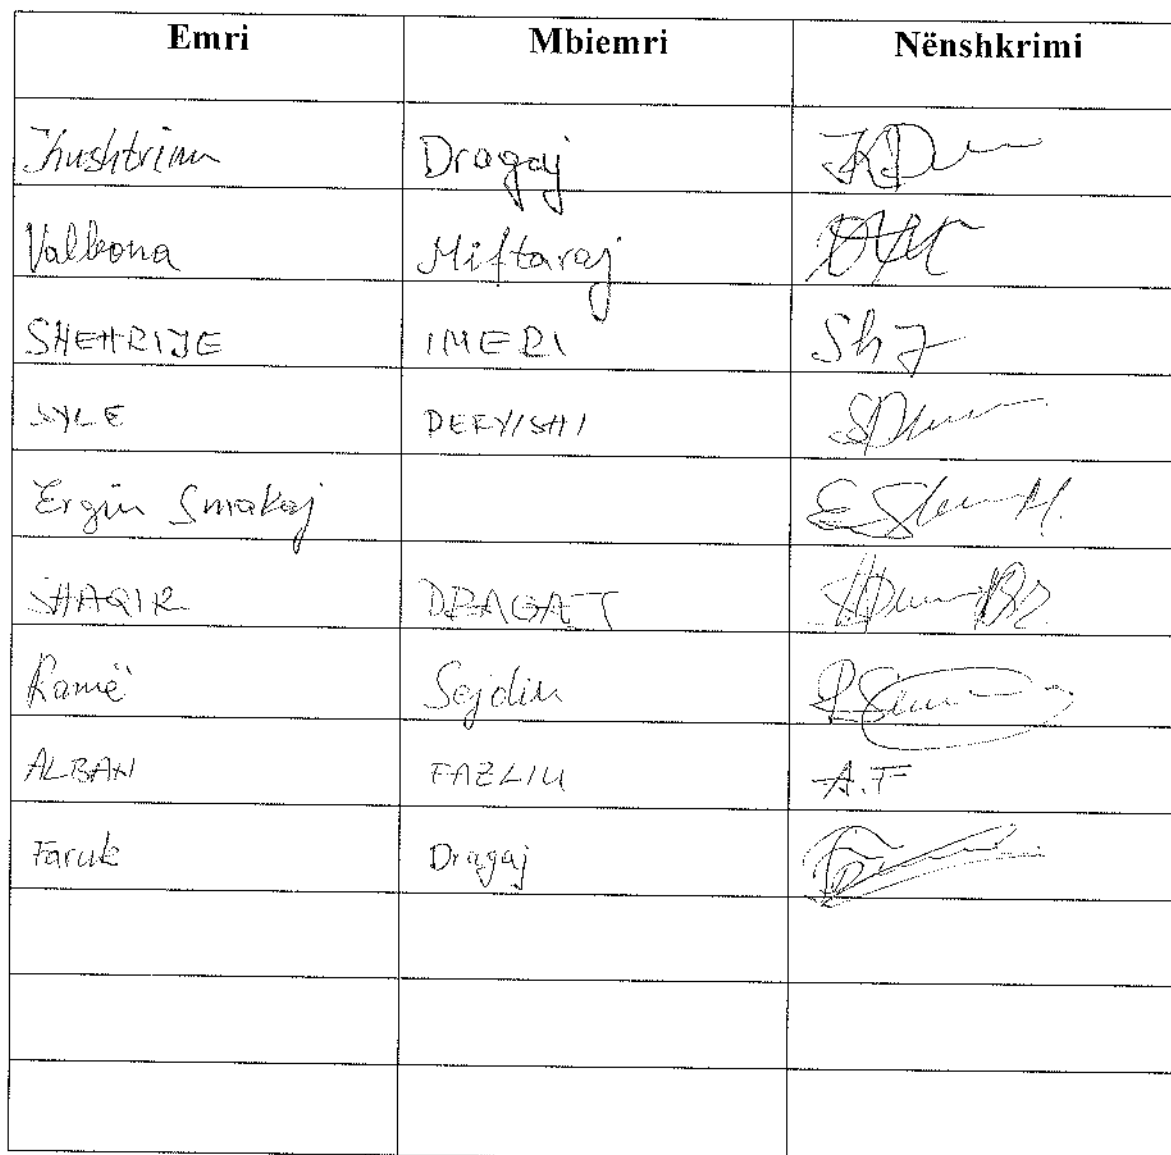 Emri Mbiemri Nënshkrimi
Kushtrim Dragaj
Valbona Miftaraj
SHEHRIJE IMERI Sh I
SYLE DERVISHI
Ergin Smakaj
SHAQIR DRAGAJ
Ramë Sejdiu
ALBAN FAZLIU A.F
Faruk Dragaj